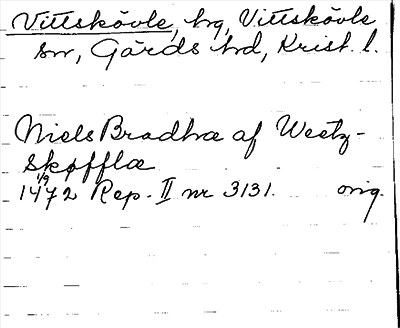 Vittskövle, hg, Vittskövle
sn, Gärds hd, Krist. l.
Niels Bradhæ af Weetz-
skøfflæ
1472 1/9 Rep. II nr 3131. orig.